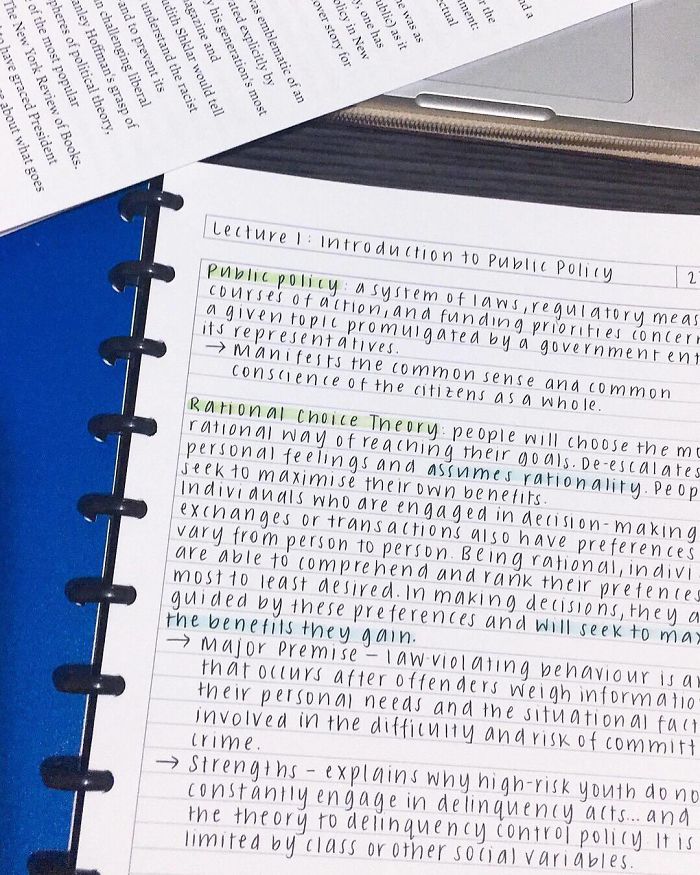 a
the
was as
as it
one has
in New
story for
as emblematic of an
explicitly by
his generation's most
and
Shklar would tell
understand the racist
and to prevent its
in challenging liberal
Hoffman's grasp of
of political theory,
of the most popular
The New York Review of Books.
have graced President
about what goes
Lecture 1: Introduction to Public Policy
2
Public policy: a system of laws, regulatory meas
courses of action, and funding priorities concer
a given topic promulgated by a government ent
its representatives.
→ Manifests the common sense and common
conscience of the citizens as a whole.
Rational Choice Theory: people will choose the mo
rational way of reaching their goals. De-escalates
personal feelings and assumes rationality. Peop
seek to maximise their own benefits.
Individuals who are engaged in decision-making
exchanges or transactions also have preferences
vary from person to person. Being rational, indivi
are able to comprehend and rank their prefences
most to least desired. In making decisions, they a
guided by these preferences and will seek to max
the benefits they gain.
→ Major Premise – law-violating behaviour is an
that occurs after offenders weigh informatio
their personal needs and the situational fact
involved in the difficulty and risk of committ
crime.
→ Strengths – explains why high-risk youth do no
constantly engage in delinquency acts... and
the theory to delinquency control policy It is
limited by class or other social variables.